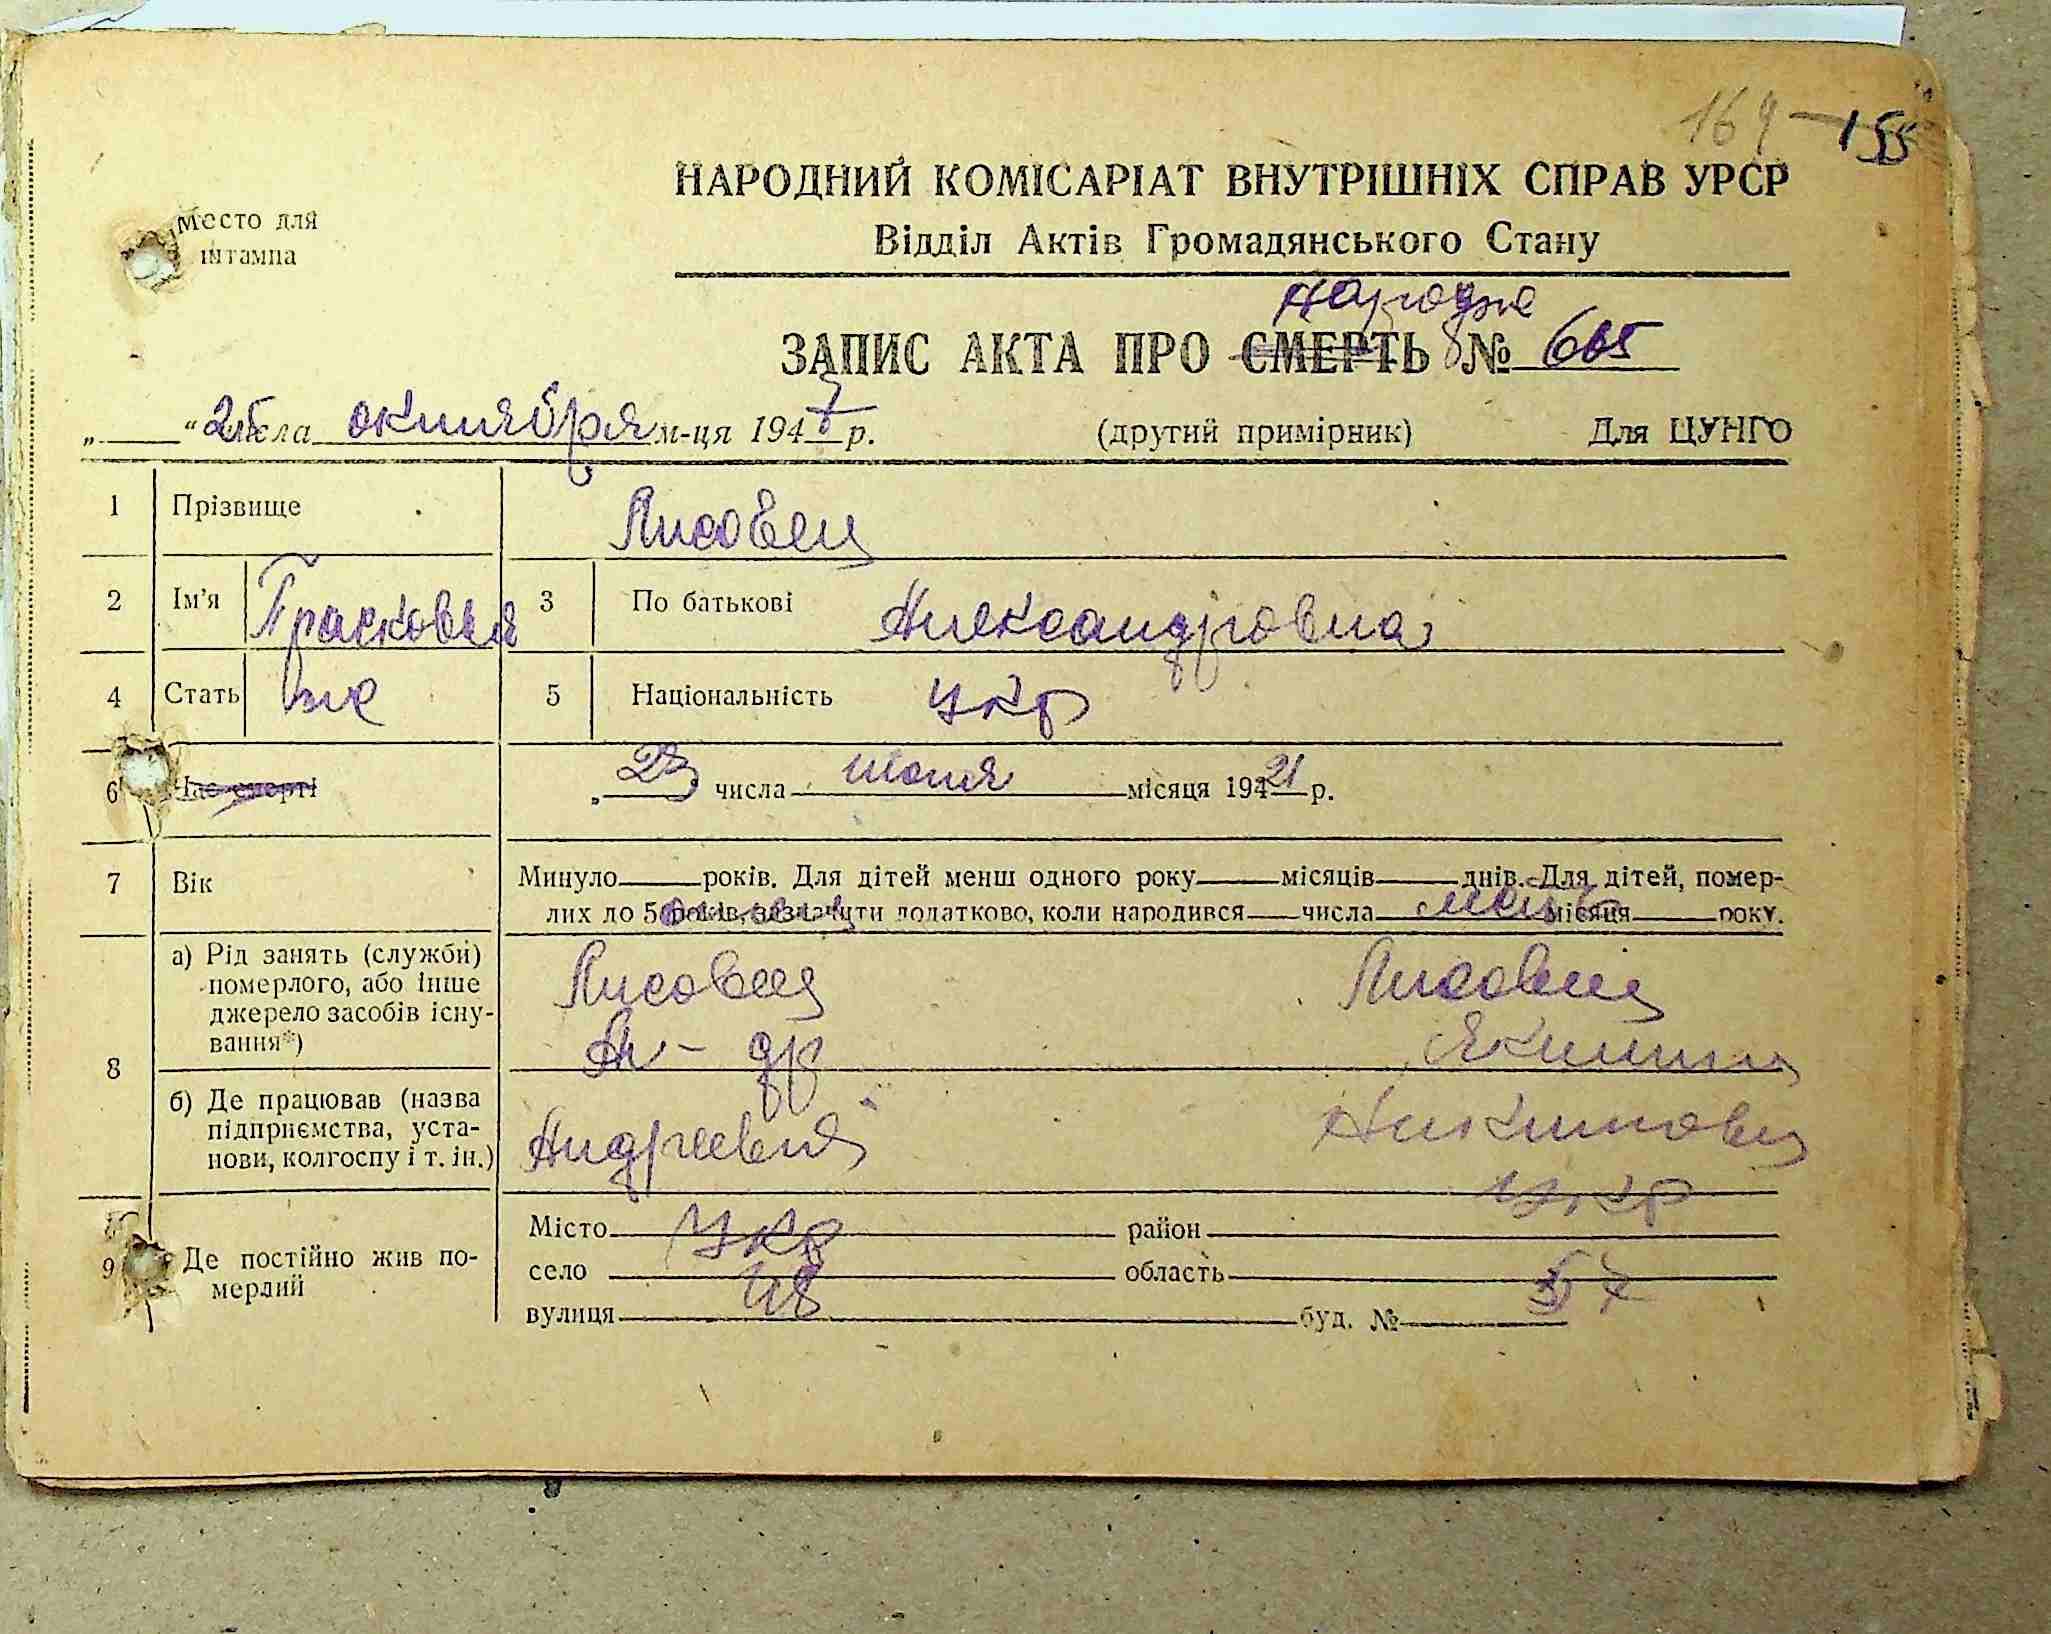 169 - 155
Место для
штампа
НАРОДНИЙ КОМІСАРІАТ ВНУТРІШНІХ СПРАВ УРСР
Відділ Актів Громадянського Стану
ЗАПИС АКТА ПРО СМЕРТЬ №
„ “ 25 числа октября м-ця 1947 р. (другий примірник) Для ЦУНГО
1 Прізвище Лисовец
2 Ім'я Прасковья 3 По батькові Александровна
4 Стать же 5 Національність укр
6 Час смерті „ 23 числа июня місяця 194 21 р.
7 Вік Минуло років. Для дітей менш одного року місяців днів. Для дітей, помер-
лих до 5 років, зазначити додатково, коли народився числа мать місяця року.
8 а) Рід занять (служби) померлого, або інше джерело засобів існу-вання*)
Лисовец Лисовец
Ал-др
б) Де працював (назва підприємства, уста-нови, колгоспу і т. ін.)
Андреевич
укр
9 Де постійно жив по-мерлий
Місто укр район
село 48 область 57
вулиця буд. №